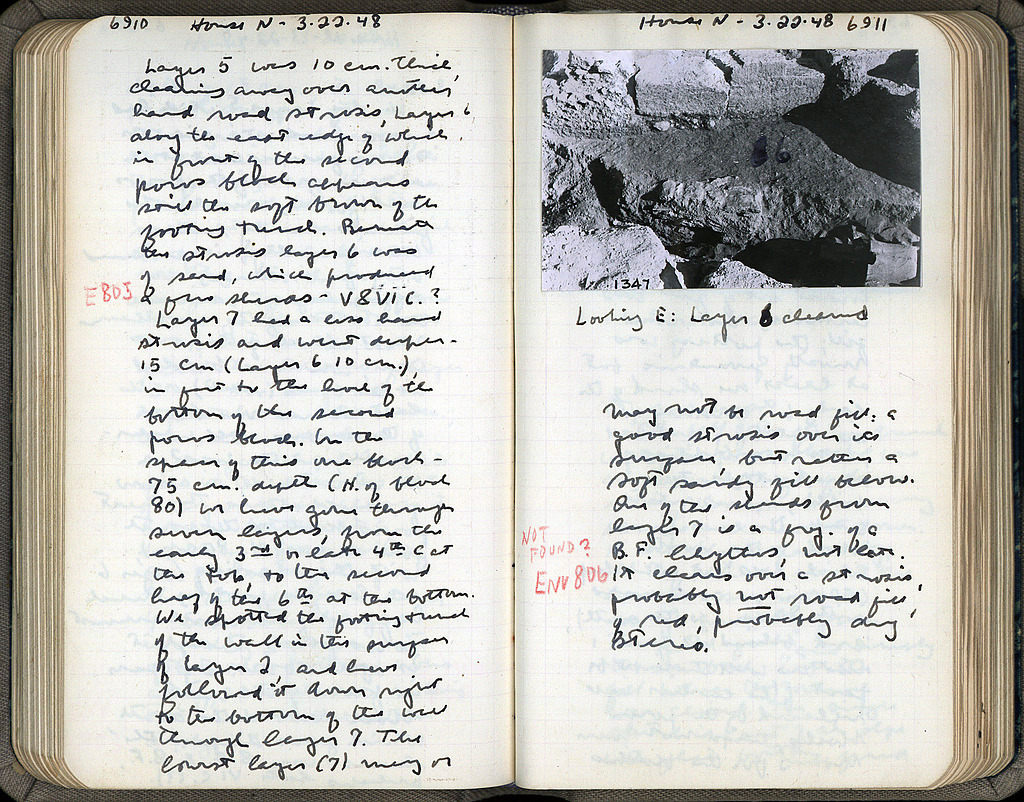 6910 House N - 3.22.48
Layer 5 was 10 cm. thick,
clearing away over another
hard road strosis, Layer 6
along the east edge of which
in front of the second
poros block appears
still the soft brown of the
footing trench. Beneath
the strosis layer 6 was
of sand, which produced
E 805
a few sherds - V & VI C. ?
Layer 7 had a less hard
strosis and went deeper -
15 cm (Layer 6 10 cm.),
in fact to the level of the
bottom of the second
poros block. In the
space of this one block -
75 cm. depth (H. of block
80) we have gone through
seven layers, from the
early 3rd or late 4th C at
the top, to the second
half of the 6th at the bottom.
We spotted the footing trench
of the wall in the surface
of layer 2, and have
followed it down right
to the bottom of the wall
through layer 7. The
lowest layer (7) may or
House N - 3.22.48 6911
6
1347
Looking E: Layer 6 cleaned
may not be road fill: a
good strosis over its
surface, but rather a
soft sandy fill below.
One of the sherds from
layer 7 is a frag. of a
NOT
FOUND?
ENV 806
B.F. lekythos, not late.
It clears over a strosis,
probably not road fill,
of red, probably clay
Stereo.